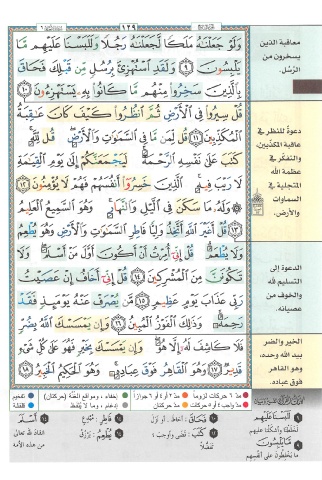 ١٢٩
وَلَوْ جَعَلْنَٰهُ مَلَكًا لَّجَعَلْنَٰهُ رَجُلًا وَلَلَبَسْنَا عَلَيْهِم مَّا
يَلْبِسُونَ ٩ وَلَقَدِ ٱسْتُهْزِئَ بِرُسُلٍ مِّن قَبْلِكَ فَحَاقَ
بِٱلَّذِينَ سَخِرُوا۟ مِنْهُم مَّا كَانُوا۟ بِهِۦ يَسْتَهْزِءُونَ ١٠
قُلْ سِيرُوا۟ فِى ٱلْأَرْضِ ثُمَّ ٱنظُرُوا۟ كَيْفَ كَانَ عَٰقِبَةُ
ٱلْمُكَذِّبِينَ ١١ قُل لِّمَن مَّا فِى ٱلسَّمَٰوَٰتِ وَٱلْأَرْضِ قُل لِّلَّهِ
كَتَبَ عَلَىٰ نَفْسِهِ ٱلرَّحْمَةَ لَيَجْمَعَنَّكُمْ إِلَىٰ يَوْمِ ٱلْقِيَٰمَةِ
لَا رَيْبَ فِيهِ ٱلَّذِينَ خَسِرُوٓا۟ أَنفُسَهُمْ فَهُمْ لَا يُؤْمِنُونَ ١٢
وَلَهُۥ مَا سَكَنَ فِى ٱلَّيْلِ وَٱلنَّهَارِ وَهُوَ ٱلسَّمِيعُ ٱلْعَلِيمُ
١٣ قُلْ أَغَيْرَ ٱللَّهِ أَتَّخِذُ وَلِيًّا فَاطِرِ ٱلسَّمَٰوَٰتِ وَٱلْأَرْضِ وَهُوَ يُطْعِمُ
وَلَا يُطْعَمُ قُلْ إِنِّىٓ أُمِرْتُ أَنْ أَكُونَ أَوَّلَ مَنْ أَسْلَمَ وَلَا
تَكُونَنَّ مِنَ ٱلْمُشْرِكِينَ ١٤ قُلْ إِنِّىٓ أَخَافُ إِنْ عَصَيْتُ
رَبِّى عَذَابَ يَوْمٍ عَظِيمٍ ١٥ مَّن يُصْرَفْ عَنْهُ يَوْمَئِذٍ فَقَدْ
رَحِمَهُۥ وَذَٰلِكَ ٱلْفَوْزُ ٱلْمُبِينُ ١٦ وَإِن يَمْسَسْكَ ٱللَّهُ بِضُرٍّ
فَلَا كَاشِفَ لَهُۥٓ إِلَّا هُوَ وَإِن يَمْسَسْكَ بِخَيْرٍ فَهُوَ عَلَىٰ كُلِّ شَىْءٍ
قَدِيرٌ ١٧ وَهُوَ ٱلْقَاهِرُ فَوْقَ عِبَادِهِۦ وَهُوَ ٱلْحَكِيمُ ٱلْخَبِيرُ ١٨
معاقبة الذين
يسخرون من
الرُّسل.
دعوةٌ للنظر في
عاقبة المكذبين،
والتفكّر في
عظمة الله
المتجلية في
السماوات
والأرض.
الدعوة إلى
التسليم لله
والخوف من
عصيانه.
الخير والضر
بيد الله وحده،
وهو القاهر
فوق عباده.
مدّ ٦ حركات لزوماً
مدّ ٢ أو ٤ أو ٦ جوازاً
إخفاء، ومواقع الغُنَّة (حركتان)
تفخيم
مدّ واجب ٤ أو ٥ حركات
مدّ حركتان
إدغام، وما لا يُلفظ
قلقلة